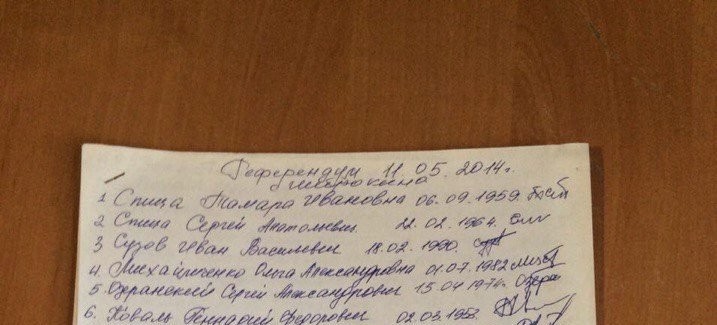 Референдум 11.05.2014г.
1 Спица Тамара Ивановна 06.09.1959
2 Спица Сергей Анатольевич 22.02.1964.
3 Сузов Иван Васильевич 18.02.1990.
4. Михайличенко Ольга Александровна 01.07.1982
5. Сергей Александрович 15.04 1974г.
6. Коваль Геннадий Федорович 02.03.1953